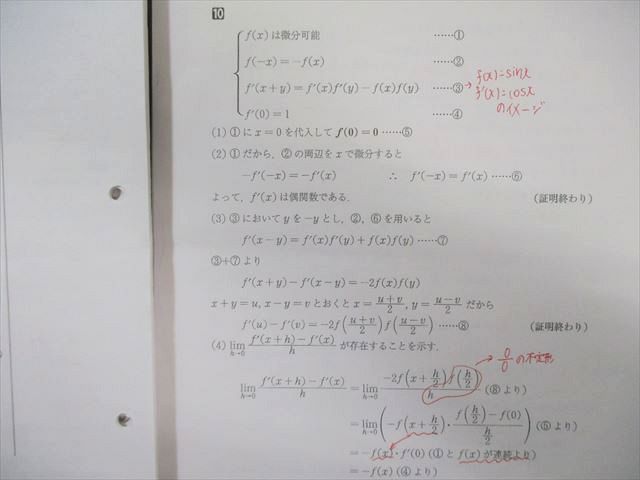 10
f(x) は微分可能 ……①
f(-x) = -f(x) ……②
f'(x+y) = f'(x)f'(y) - f(x)f(y) ……③ → f(x)=sinx
f'(x)=cosx
のイメージ
f'(0) = 1 ……④
(1) ①に x=0 を代入して f(0)=0 ……⑤
(2) ①だから, ②の両辺を x で微分すると
-f'(-x) = -f'(x) ∴ f'(-x) = f'(x) ……⑥
よって, f'(x) は偶関数である. (証明終わり)
(3) ③において y を -y とし, ②, ⑥を用いると
f'(x-y) = f'(x)f'(y) + f(x)f(y) ……⑦
③+⑦より
f'(x+y) - f'(x-y) = -2f(x)f(y)
x+y=u, x-y=v とおくと x = \frac{u+v}{2}, y = \frac{u-v}{2} だから
f'(u) - f'(v) = -2f(\frac{u+v}{2})f(\frac{u-v}{2}) ……⑧ (証明終わり)
(4) \lim_{h→0} \frac{f'(x+h)-f'(x)}{h} が存在することを示す.
→ \frac{0}{0} の不定形
\lim_{h→0} \frac{f'(x+h)-f'(x)}{h} = \lim_{h→0} \frac{-2f(x+\frac{h}{2})f(\frac{h}{2})}{h} (⑧より)
= \lim_{h→0} (-f(x+\frac{h}{2})・\frac{f(\frac{h}{2})-f(0)}{\frac{h}{2}}) (⑤より)
= -f(x)・f'(0) (①と f(x) が連続より)
= -f(x) (④より)